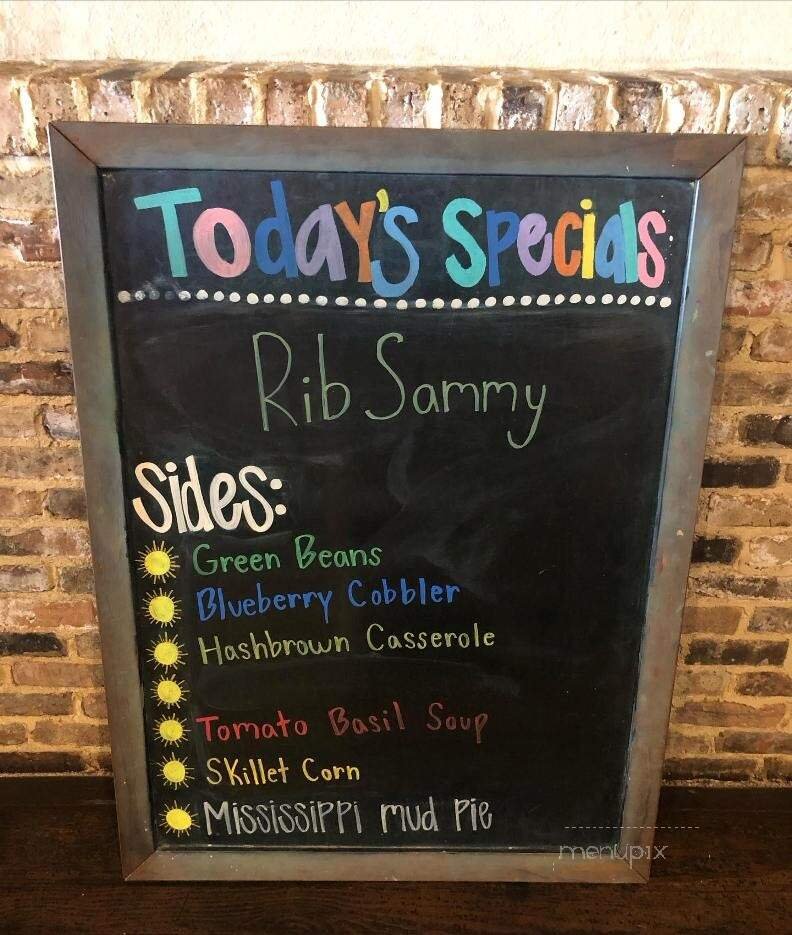 Today's Specials
Rib Sammy
Sides:
Green Beans
Blueberry Cobbler
Hashbrown Casserole
Tomato Basil Soup
Skillet Corn
Mississippi mud Pie
menupix